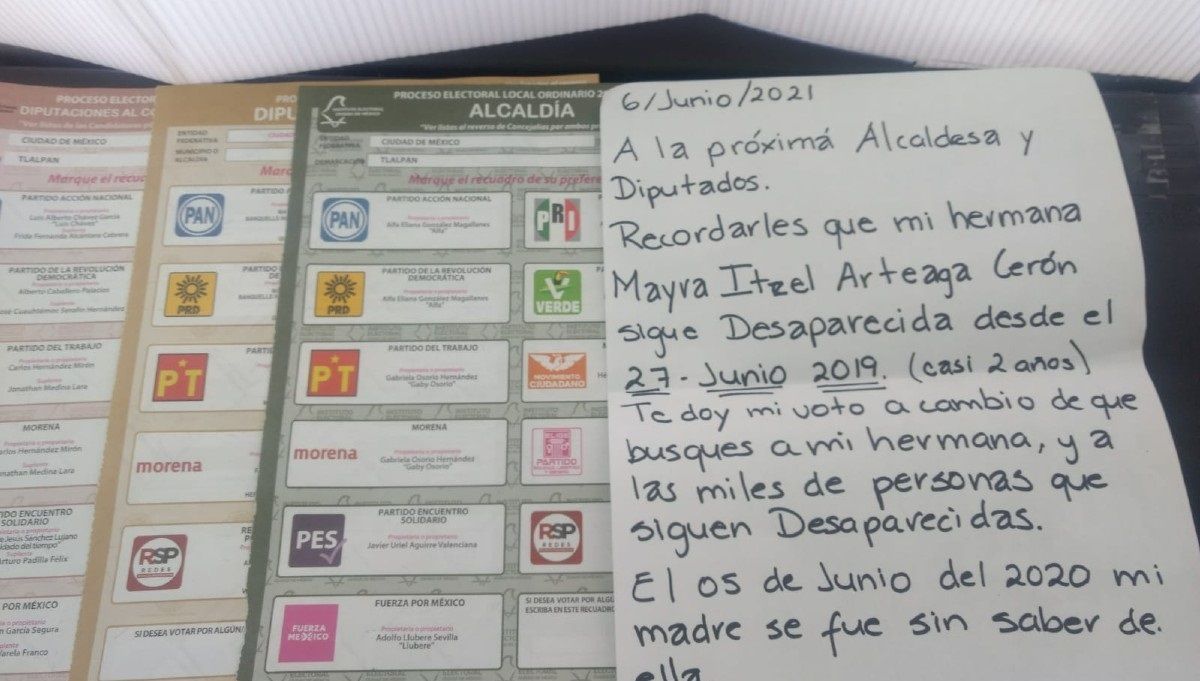 PROCESO ELECTORAL
DIPUTACIONES AL CO
CIUDAD DE MÉXICO
TLALPAN
Marque el recua
PARTIDO ACCIÓN NACIONAL
Luis Alberto Chávez García
"Luis Chávez"
Frida Fernanda Alcántara Cabrera
PARTIDO DE LA REVOLUCIÓN
DEMOCRÁTICA
Alberto Caballero Palacios
José Cuauhtémoc Serafín Hernández
PARTIDO DEL TRABAJO
Carlos Hernández Mirón
Suplente
Jonathan Medina Lara
MORENA
Carlos Hernández Mirón
Jonathan Medina Lara
PARTIDO ENCUENTRO
SOLIDARIO
Jesús Sánchez Lujano
Arturo Padilla Félix
POR MÉXICO
García Segura
Varela Franco
PRO
DIPU
ENTIDAD
FEDERATIVA
MUNICIPIO O
ALCALDÍA
Marq
PAN
PARTIDO A
PRD
PARTIDO D
PT
PARTI
morena
RSP
REDES
SI DESEA VOTAR POR ALGÚN
INSTITUTO ELECTORAL
CIUDAD DE MÉXICO
PROCESO ELECTORAL LOCAL ORDINARIO 2
ALCALDÍA
"Ver listas al reverso de Concejalías por ambos pr
ENTIDAD
FEDERATIVA
CIUDAD DE MÉXICO
DEMARCACIÓN
TLALPAN
Marque el recuadro de su prefere
PAN
PARTIDO ACCIÓN NACIONAL
Propietaria o propietario
Alfa Eliana González Magallanes
"Alfa"
PRI
PRD
PARTIDO DE LA REVOLUCIÓN
DEMOCRÁTICA
Propietaria o propietario
Alfa Eliana González Magallanes
"Alfa"
VERDE
PT
PARTIDO DEL TRABAJO
Propietaria o propietario
Gabriela Osorio Hernández
"Gaby Osorio"
MOVIMIENTO
CIUDADANO
morena
MORENA
Propietaria o propietario
Gabriela Osorio Hernández
"Gaby Osorio"
ELIGE
PARTIDO
PES
PARTIDO ENCUENTRO
SOLIDARIO
Propietaria o propietario
Javier Uriel Aguirre Valenciana
RSP
REDES
FUERZA
MEXICO
FUERZA POR MÉXICO
Propietaria o propietario
Adolfo Llubere Sevilla
"Llubere"
SI DESEA VOTAR POR ALGÚ
ESCRIBA EN ESTE RECUADRO
6/Junio/2021
A la próximá Alcaldesa y
Diputados.
Recordarles que mi hermana
Mayra Itzel Arteaga Cerón
sigue Desaparecida desde el
27-Junio 2019. (casi 2 años)
Te doy mi voto a cambio de que
busques a mi hermana, y a
las miles de personas que
siguen Desaparecidas.
El 05 de Junio del 2020 mi
madre se fue sin saber de.
ella